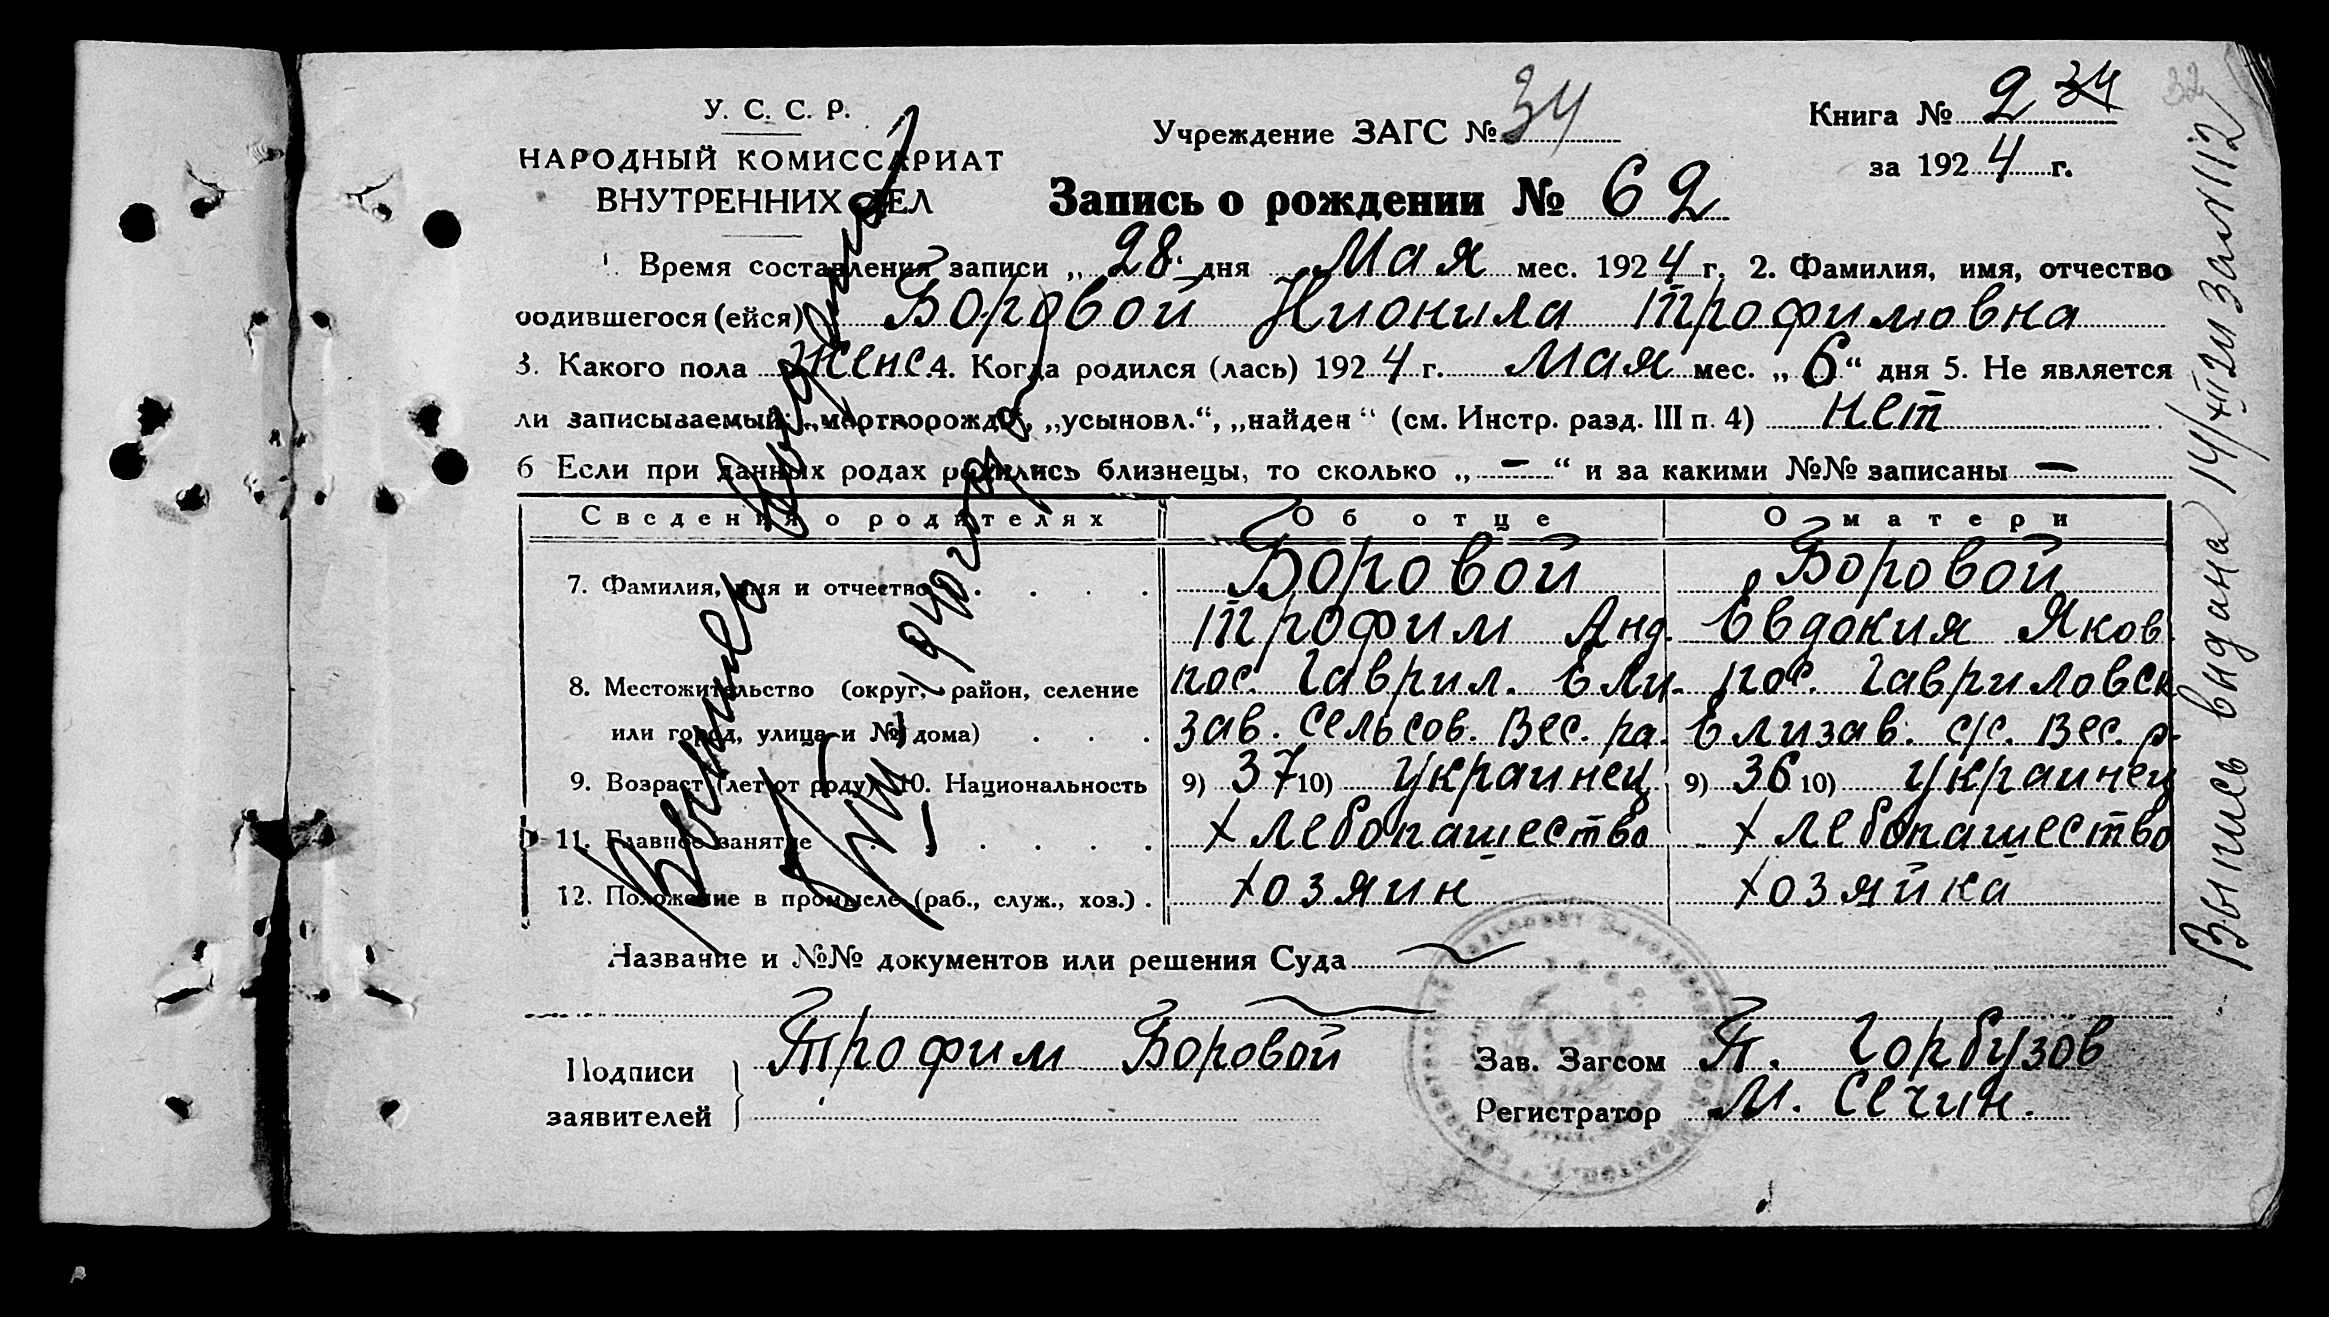 У. С. С. Р.
НАРОДНЫЙ КОМИССАРИАТ
ВНУТРЕННИХ ДЕЛ
Учреждение ЗАГС № 34
Книга № 2 34
32
за 1924 г.
Запись о рождении № 62
1. Время составления записи „28“ дня Мая мес. 1924 г. 2. Фамилия, имя, отчество
родившегося (ейся) Боровой Нионила Трофимовна
3. Какого пола Женс. 4. Когда родился (лась) 1924 г. Мая мес. „6“ дня 5. Не является
ли записываемый: „мертворожд.“, „усыновл.“, „найден“ (см. Инстр. разд. III п. 4) нет
6 Если при данных родах родились близнецы, то сколько „—“ и за какими №№ записаны —
Сведения о родителях Об отце О матери
7. Фамилия, имя и отчество . . . . Боровой Боровой
Трофим Анд. Евдокия Яков.
8. Местожительство (округ, район, селение пос. Гаврил. Ели- пос. Гавриловск
или город, улица и № дома) . . . зав. сельсов. Вес. ра. Елизав. с/с. Вес. р-
9. Возраст (лет от роду) 10. Национальность 9) 37 10) украинец 9) 36 10) украинец
11. Главное занятие . . . . . . хлебопашество хлебопашество
12. Положение в промысле (раб., служ., хоз.) . хозяин хозяйка
Название и №№ документов или решения Суда
Подписи
заявителей
Трофим Боровой
Зав. Загсом Т. Горбузов
Регистратор М. Сечин.
Выпись выдана 14/XII
Выпись выдана
1940 года